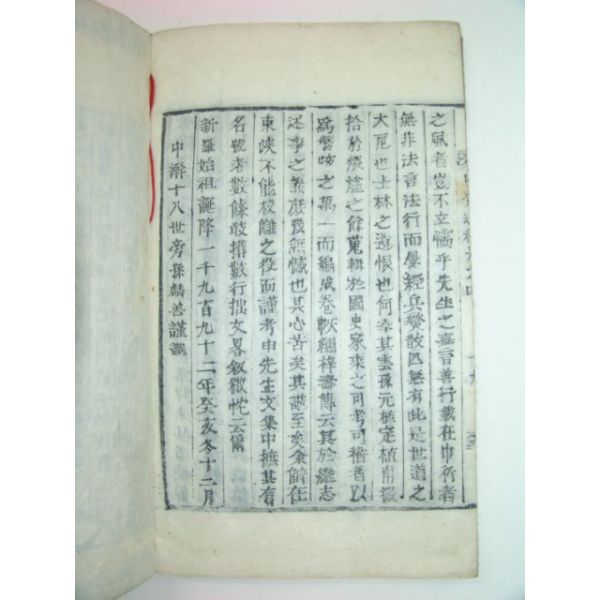 之風者豈不立懦乎先生之嘉言善行載在巾衍者
無非法言法行而屢經兵燹散匹無有此是世道之
大厄也士林之遺恨也何幸其雲孫元植定植甫掇
拾於煨爐之餘蒐輯於國史家乘之可考可稽者以
爲警咳之萬一而編成卷帙繡梓壽傳云其於繼志
述事之義庶幾無憾也其心苦矣其謨至矣余僻在
東峽不能校讎之役而謹考申先生文集中撫其有
名號者數條敢撰數行拙文畧叙微忱云爾
新羅始祖誕降一千九百九十二年癸亥冬十二月
中澣十八世旁孫麟善謹識